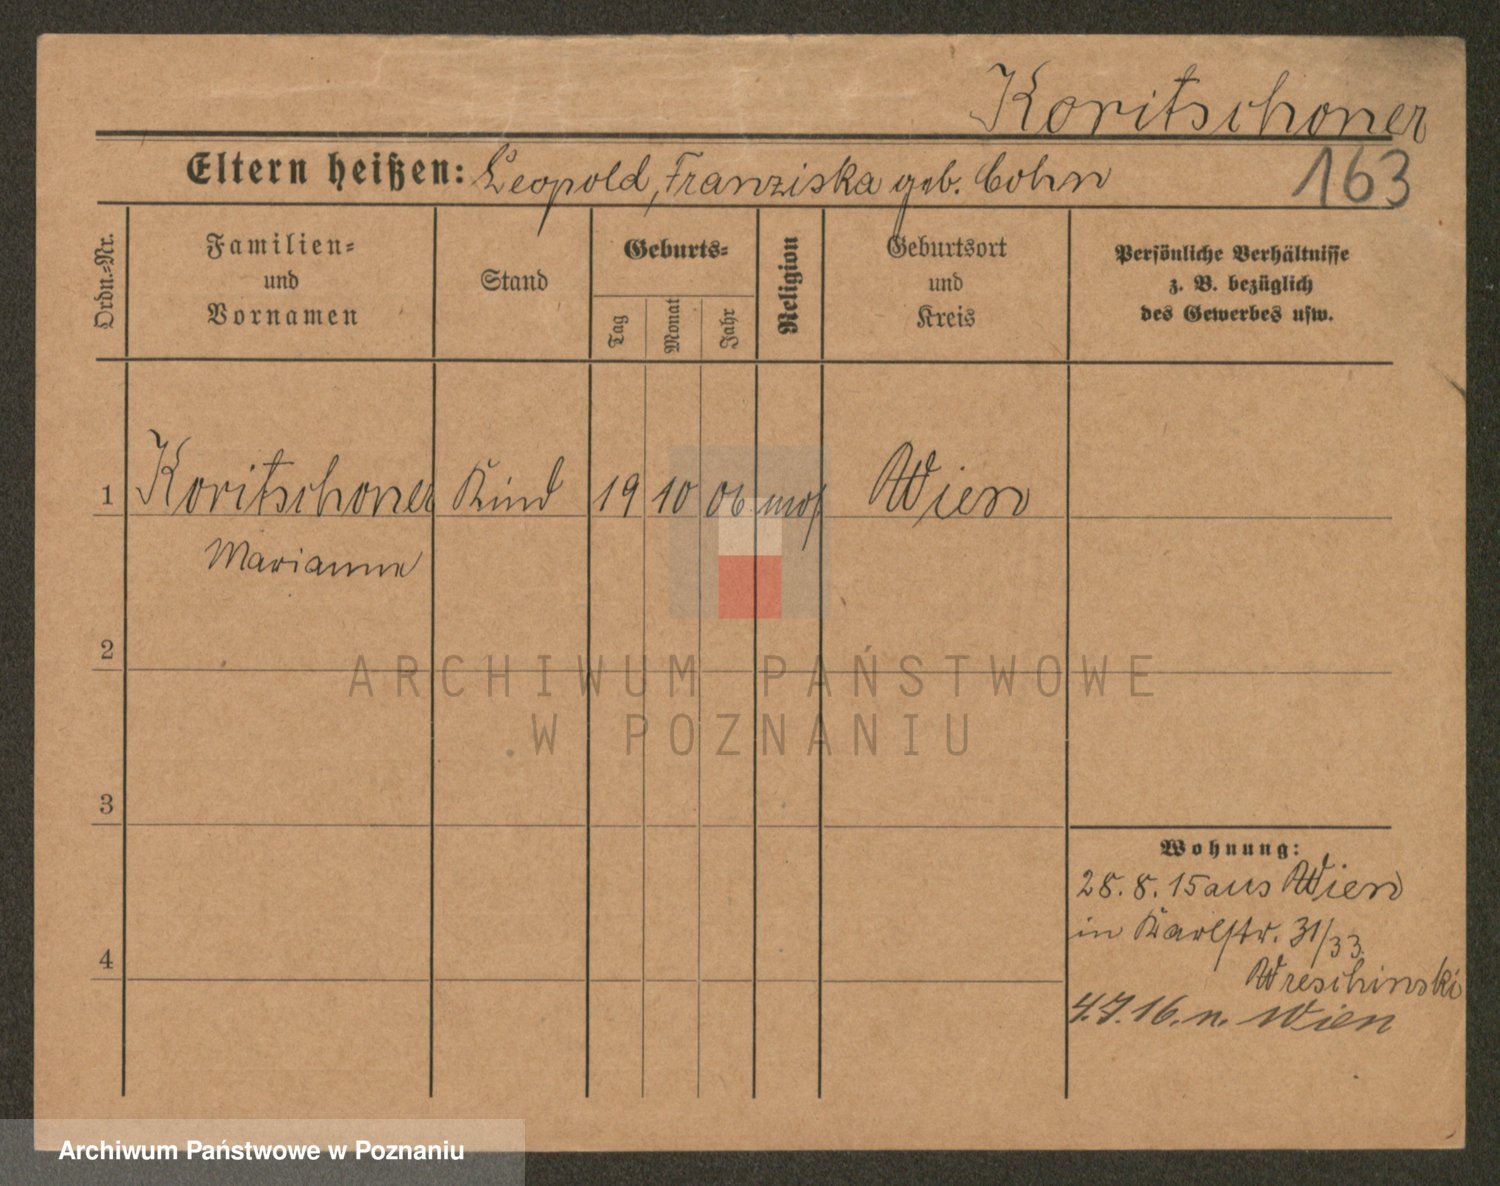 Koritschoner
Eltern heißen: Leopold, Franziska geb. Cohn
163
Ordn.-Nr.
Familien-
und
Vornamen
Stand
Geburts-
Tag
Monat
Jahr
Religion
Geburtsort
und
Kreis
Persönliche Verhältnisse
z. B. bezüglich
des Gewerbes usw.
1 Koritschoner Kind 19 10 06 mos Wien
Marianne
2
ARCHIWUM PAŃSTWOWE
W POZNANIU
3
Wohnung:
28. 8. 15 aus Wien
in Karlstr. 31/33
4
Wreschinski
4.7.16. n. Wien
Archiwum Państwowe w Poznaniu